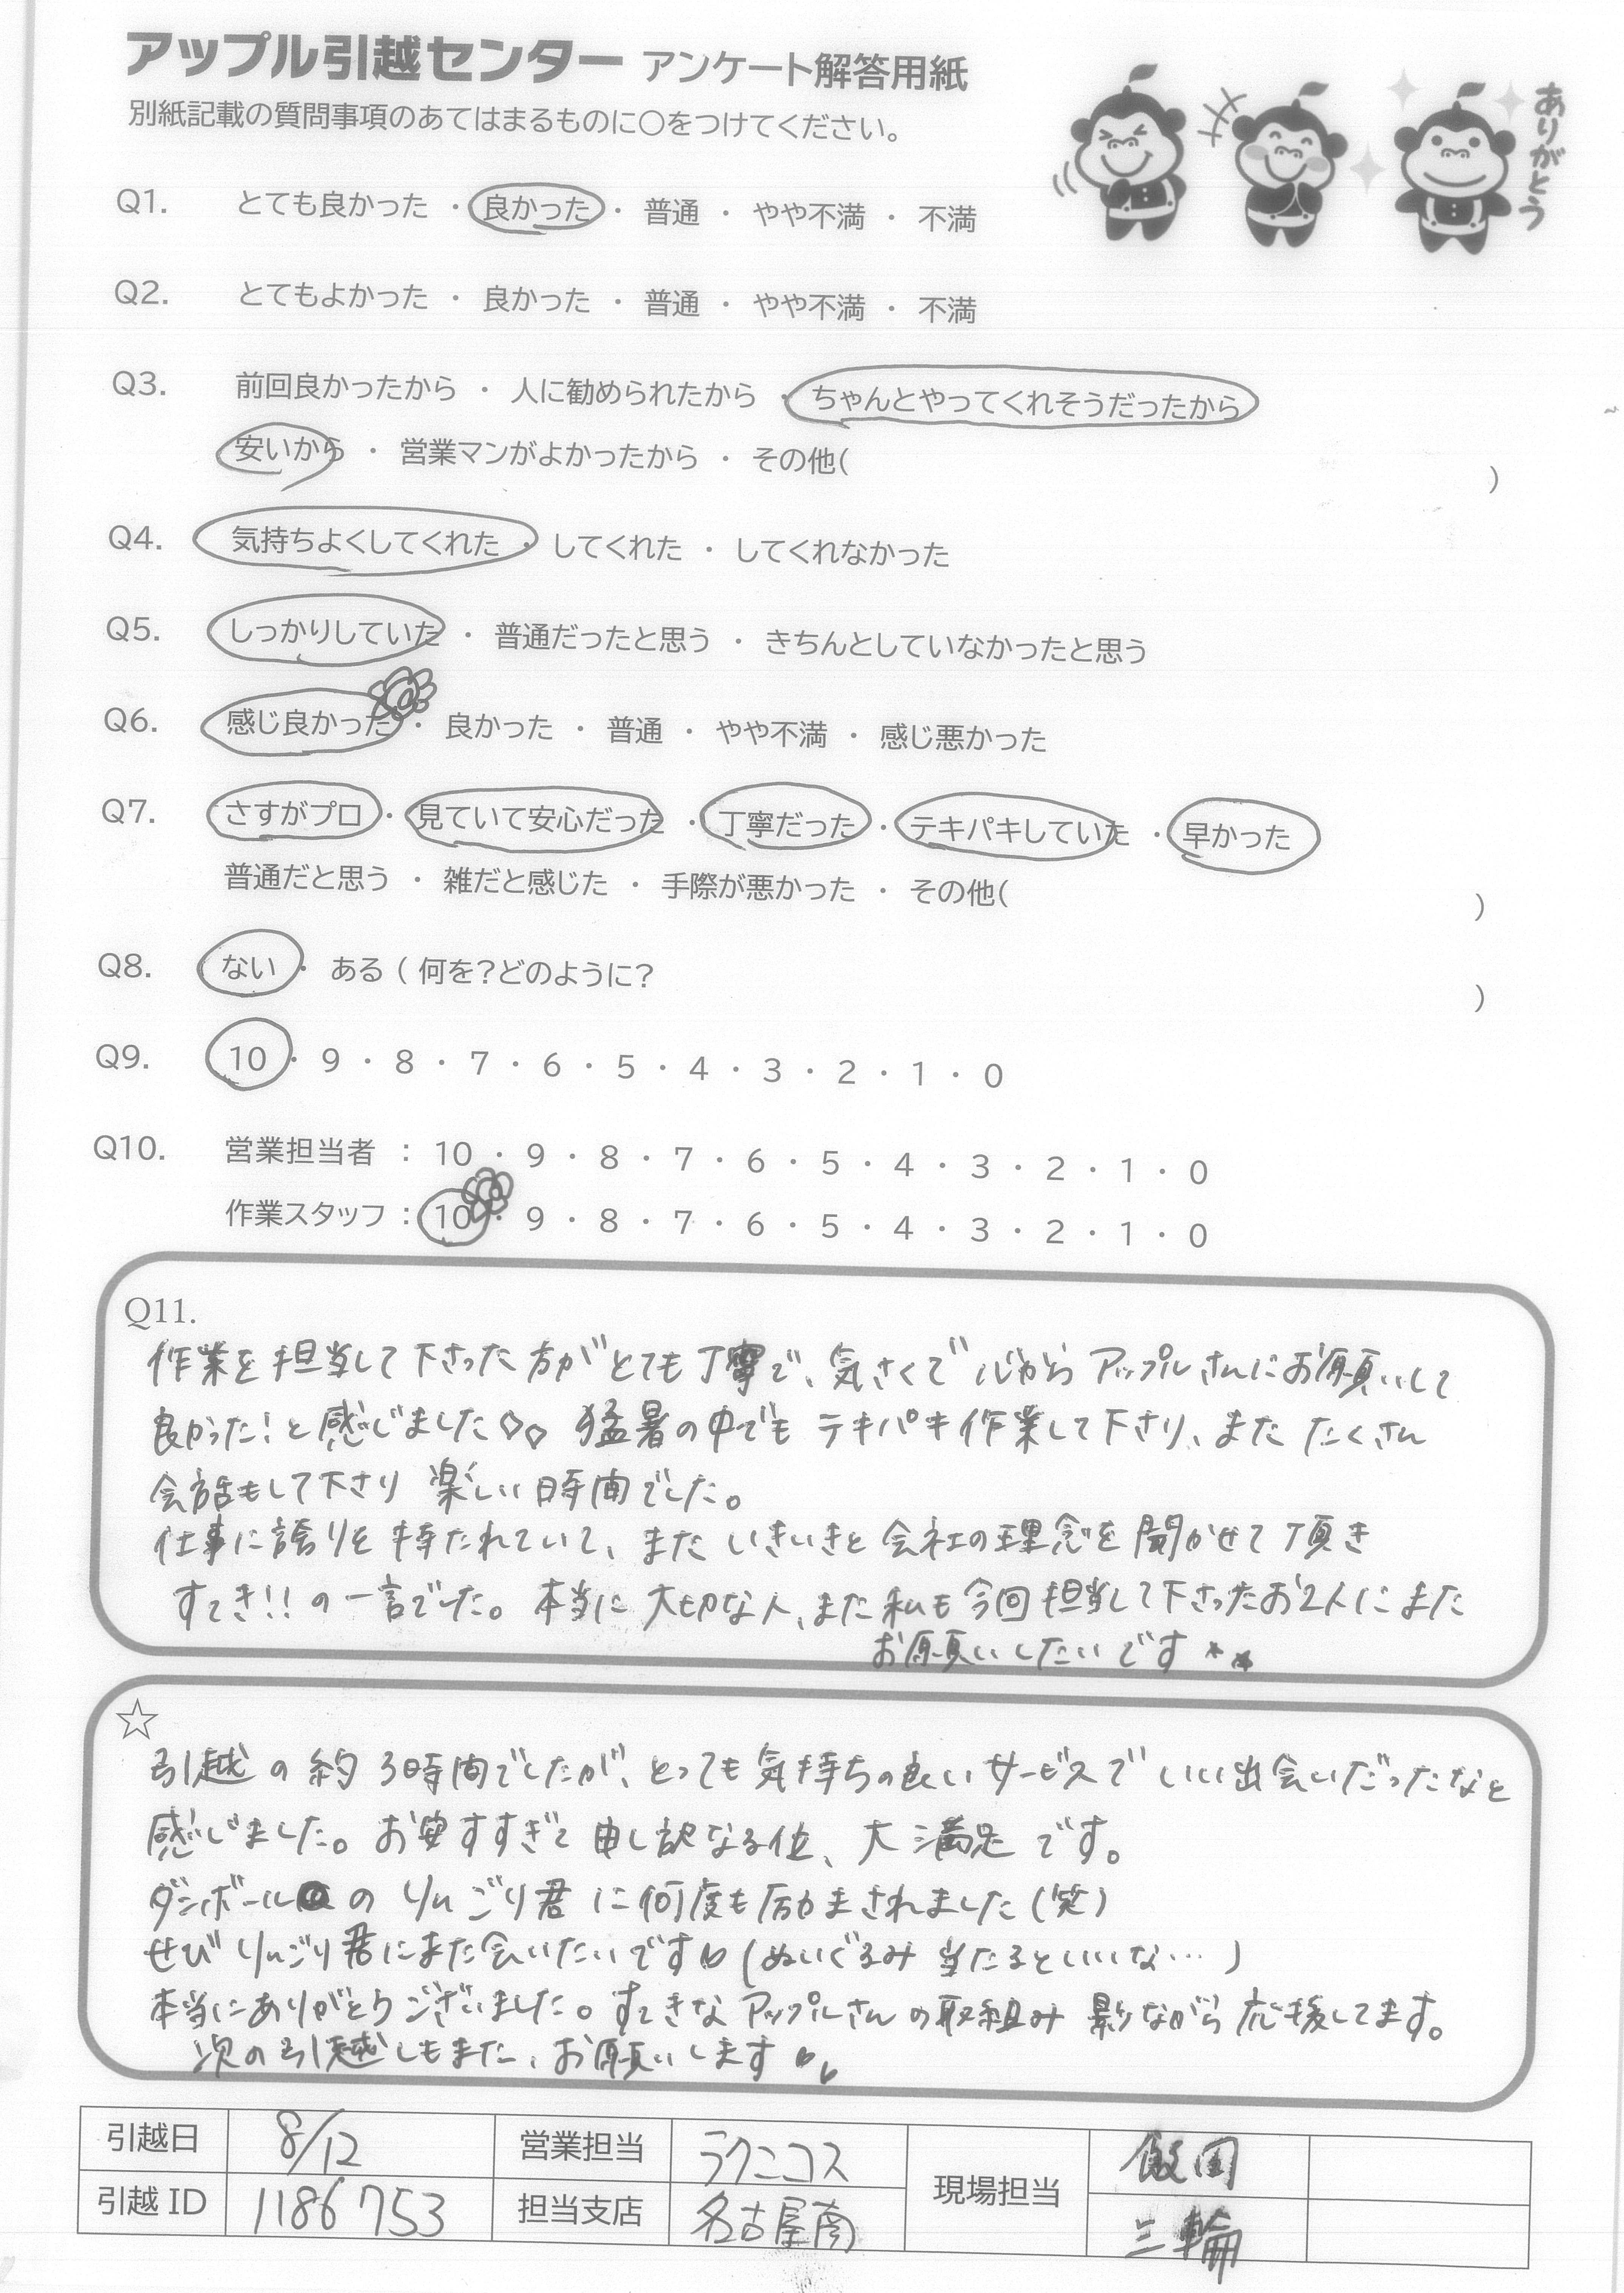 アップル引越センター アンケート解答用紙
別紙記載の質問事項のあてはまるものに○をつけてください。
ありがとう
Q1. とても良かった ・ 良かった ・ 普通 ・ やや不満 ・ 不満
Q2. とてもよかった ・ 良かった ・ 普通 ・ やや不満 ・ 不満
Q3. 前回良かったから ・ 人に勧められたから ・ ちゃんとやってくれそうだったから
安いから ・ 営業マンがよかったから ・ その他( )
Q4. 気持ちよくしてくれた ・ してくれた ・ してくれなかった
Q5. しっかりしていた ・ 普通だったと思う ・ きちんとしていなかったと思う
Q6. 感じ良かった ・ 良かった ・ 普通 ・ やや不満 ・ 感じ悪かった
Q7. さすがプロ ・ 見ていて安心だった ・ 丁寧だった ・ テキパキしていた ・ 早かった
普通だと思う ・ 雑だと感じた ・ 手際が悪かった ・ その他( )
Q8. ない ・ ある ( 何を?どのように? )
Q9. 10 ・ 9 ・ 8 ・ 7 ・ 6 ・ 5 ・ 4 ・ 3 ・ 2 ・ 1 ・ 0
Q10. 営業担当者 : 10 ・ 9 ・ 8 ・ 7 ・ 6 ・ 5 ・ 4 ・ 3 ・ 2 ・ 1 ・ 0
作業スタッフ : 10 ・ 9 ・ 8 ・ 7 ・ 6 ・ 5 ・ 4 ・ 3 ・ 2 ・ 1 ・ 0
Q11.
作業を担当して下さった方がとても丁寧で、気さくで心からアップルさんにお願いして
良かった!と感じました◇◇ 猛暑の中でもテキパキ作業して下さり、またたくさん
会話もして下さり 楽しい時間でした。
仕事に誇りを持たれていて、またいきいきと会社の理念を聞かせて頂き
すてき!!の一言でした。本当に大切な人、また私も今回担当して下さったお2人にまた
お願いしたいです**
☆
引越の約3時間でしたが、とっても気持ちの良いサービスでいい出会いだったなと
感じました。お安すすぎて申し訳なる位、大満足です。
ダンボールの りんごり君に何度も励まされました(笑)
せび りんごり君にまた会いたいです♡(ぬいぐるみ 当たるといいな…)
本当にありがとうございました。すてきなアップルさんの取組み 影ながら応援してます。
次の引越しもまた、お願いします♡
引越日 8/12 営業担当 ラクニコス 現場担当 飯田
引越ID 1186753 担当支店 名古屋南 三輪